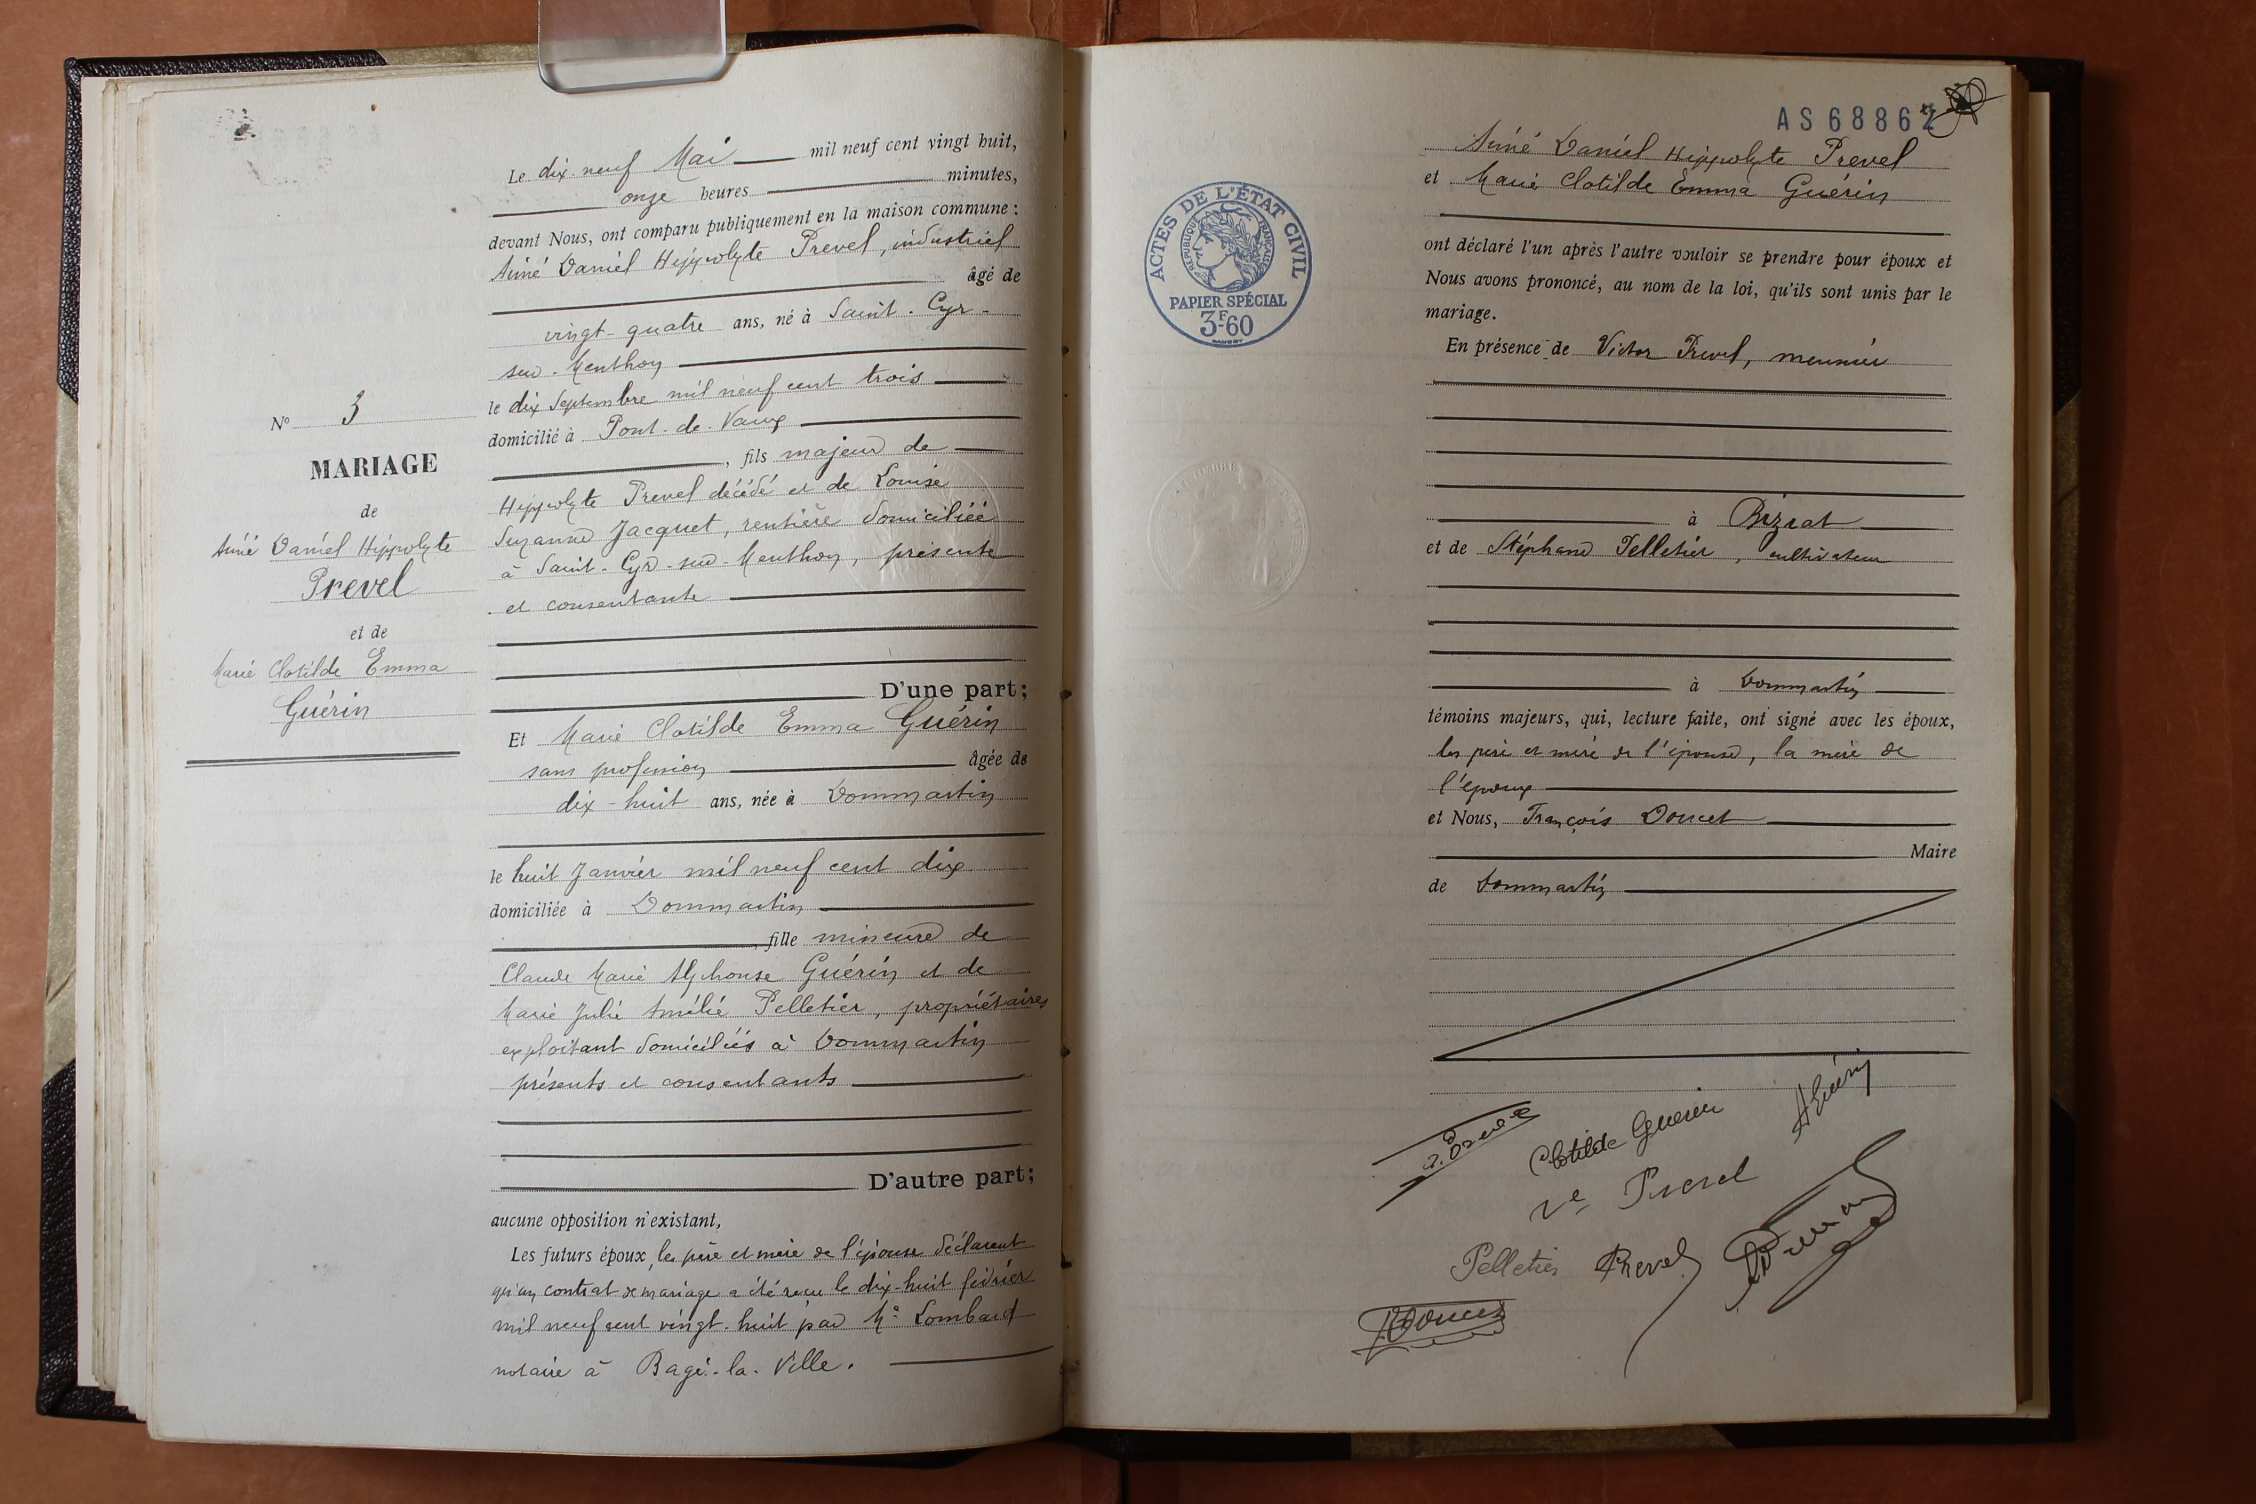 Le dix-neuf Mai mil neuf cent vingt huit,
onze heures minutes,
devant Nous, ont comparu publiquement en la maison commune :
Aimé Daniel Hippolyte Prevel, industriel
âgé de
vingt-quatre ans, né à Saint-Cyr-
sur-Menthon
le dix Septembre mil neuf cent trois
domicilié à Pont-de-Vaux
, fils majeur de
Hippolyte Prevel décédé et de Louise
Suzanne Jacquet, rentière domiciliée
à Saint-Cyr-sur-Menthon, présente
et consentante
D'une part;
Et Marie Clotilde Emma Guérin
sans profession âgée de
dix-huit ans, née à Dommartin
le huit Janvier mil neuf cent dix
domiciliée à Dommartin
, fille mineure de
Claude Marie Alphonse Guérin et de
Marie Julie Amélie Pelletier, propriétaires
exploitant domiciliés à Dommartin
présents et consentants
D'autre part;
aucune opposition n'existant,
Les futurs époux, les père et mère de l'épouse déclarent
qu'un contrat de mariage a été reçu le dix-huit février
mil neuf cent vingt-huit par Me Lombard
notaire à Bagé-la-Ville.
No 3
MARIAGE
de
Aimé Daniel Hippolyte
Prevel
et de
Marie Clotilde Emma
Guérin
AS68862
ACTES DE L'ÉTAT CIVIL
RÉPUBLIQUE FRANÇAISE
PAPIER SPÉCIAL
3F-60
Aimé Daniel Hippolyte Prevel
et Marie Clotilde Emma Guérin
ont déclaré l'un après l'autre vouloir se prendre pour époux et
Nous avons prononcé, au nom de la loi, qu'ils sont unis par le
mariage.
En présence de Victor Prevel, meunier
à Biziat
et de Stéphane Pelletier, cultivateur
à Dommartin
témoins majeurs, qui, lecture faite, ont signé avec les époux,
les père et mère de l'épouse, la mère de
l'époux
et Nous, François Doucet
Maire
de Dommartin
Clotilde Guerin
AGuérin
Ve Prevel
Pelletier Prevel
Doucet